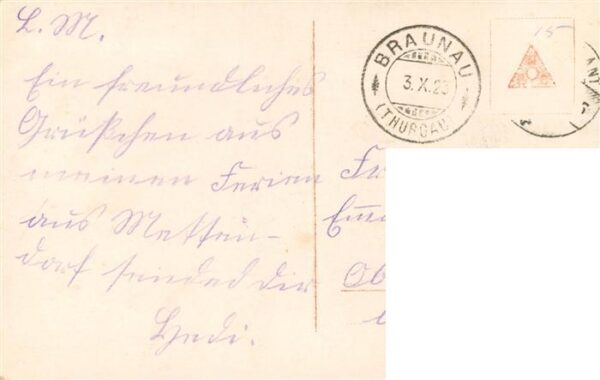 L. M.
Ein freundliches
Grüßchen aus
meinen Ferien
aus Metten-
dorf sended dir
Hedi.
BRAUNAU
3.X.23
(THURGAU)
15
Fr
Emm
Ob
ANT